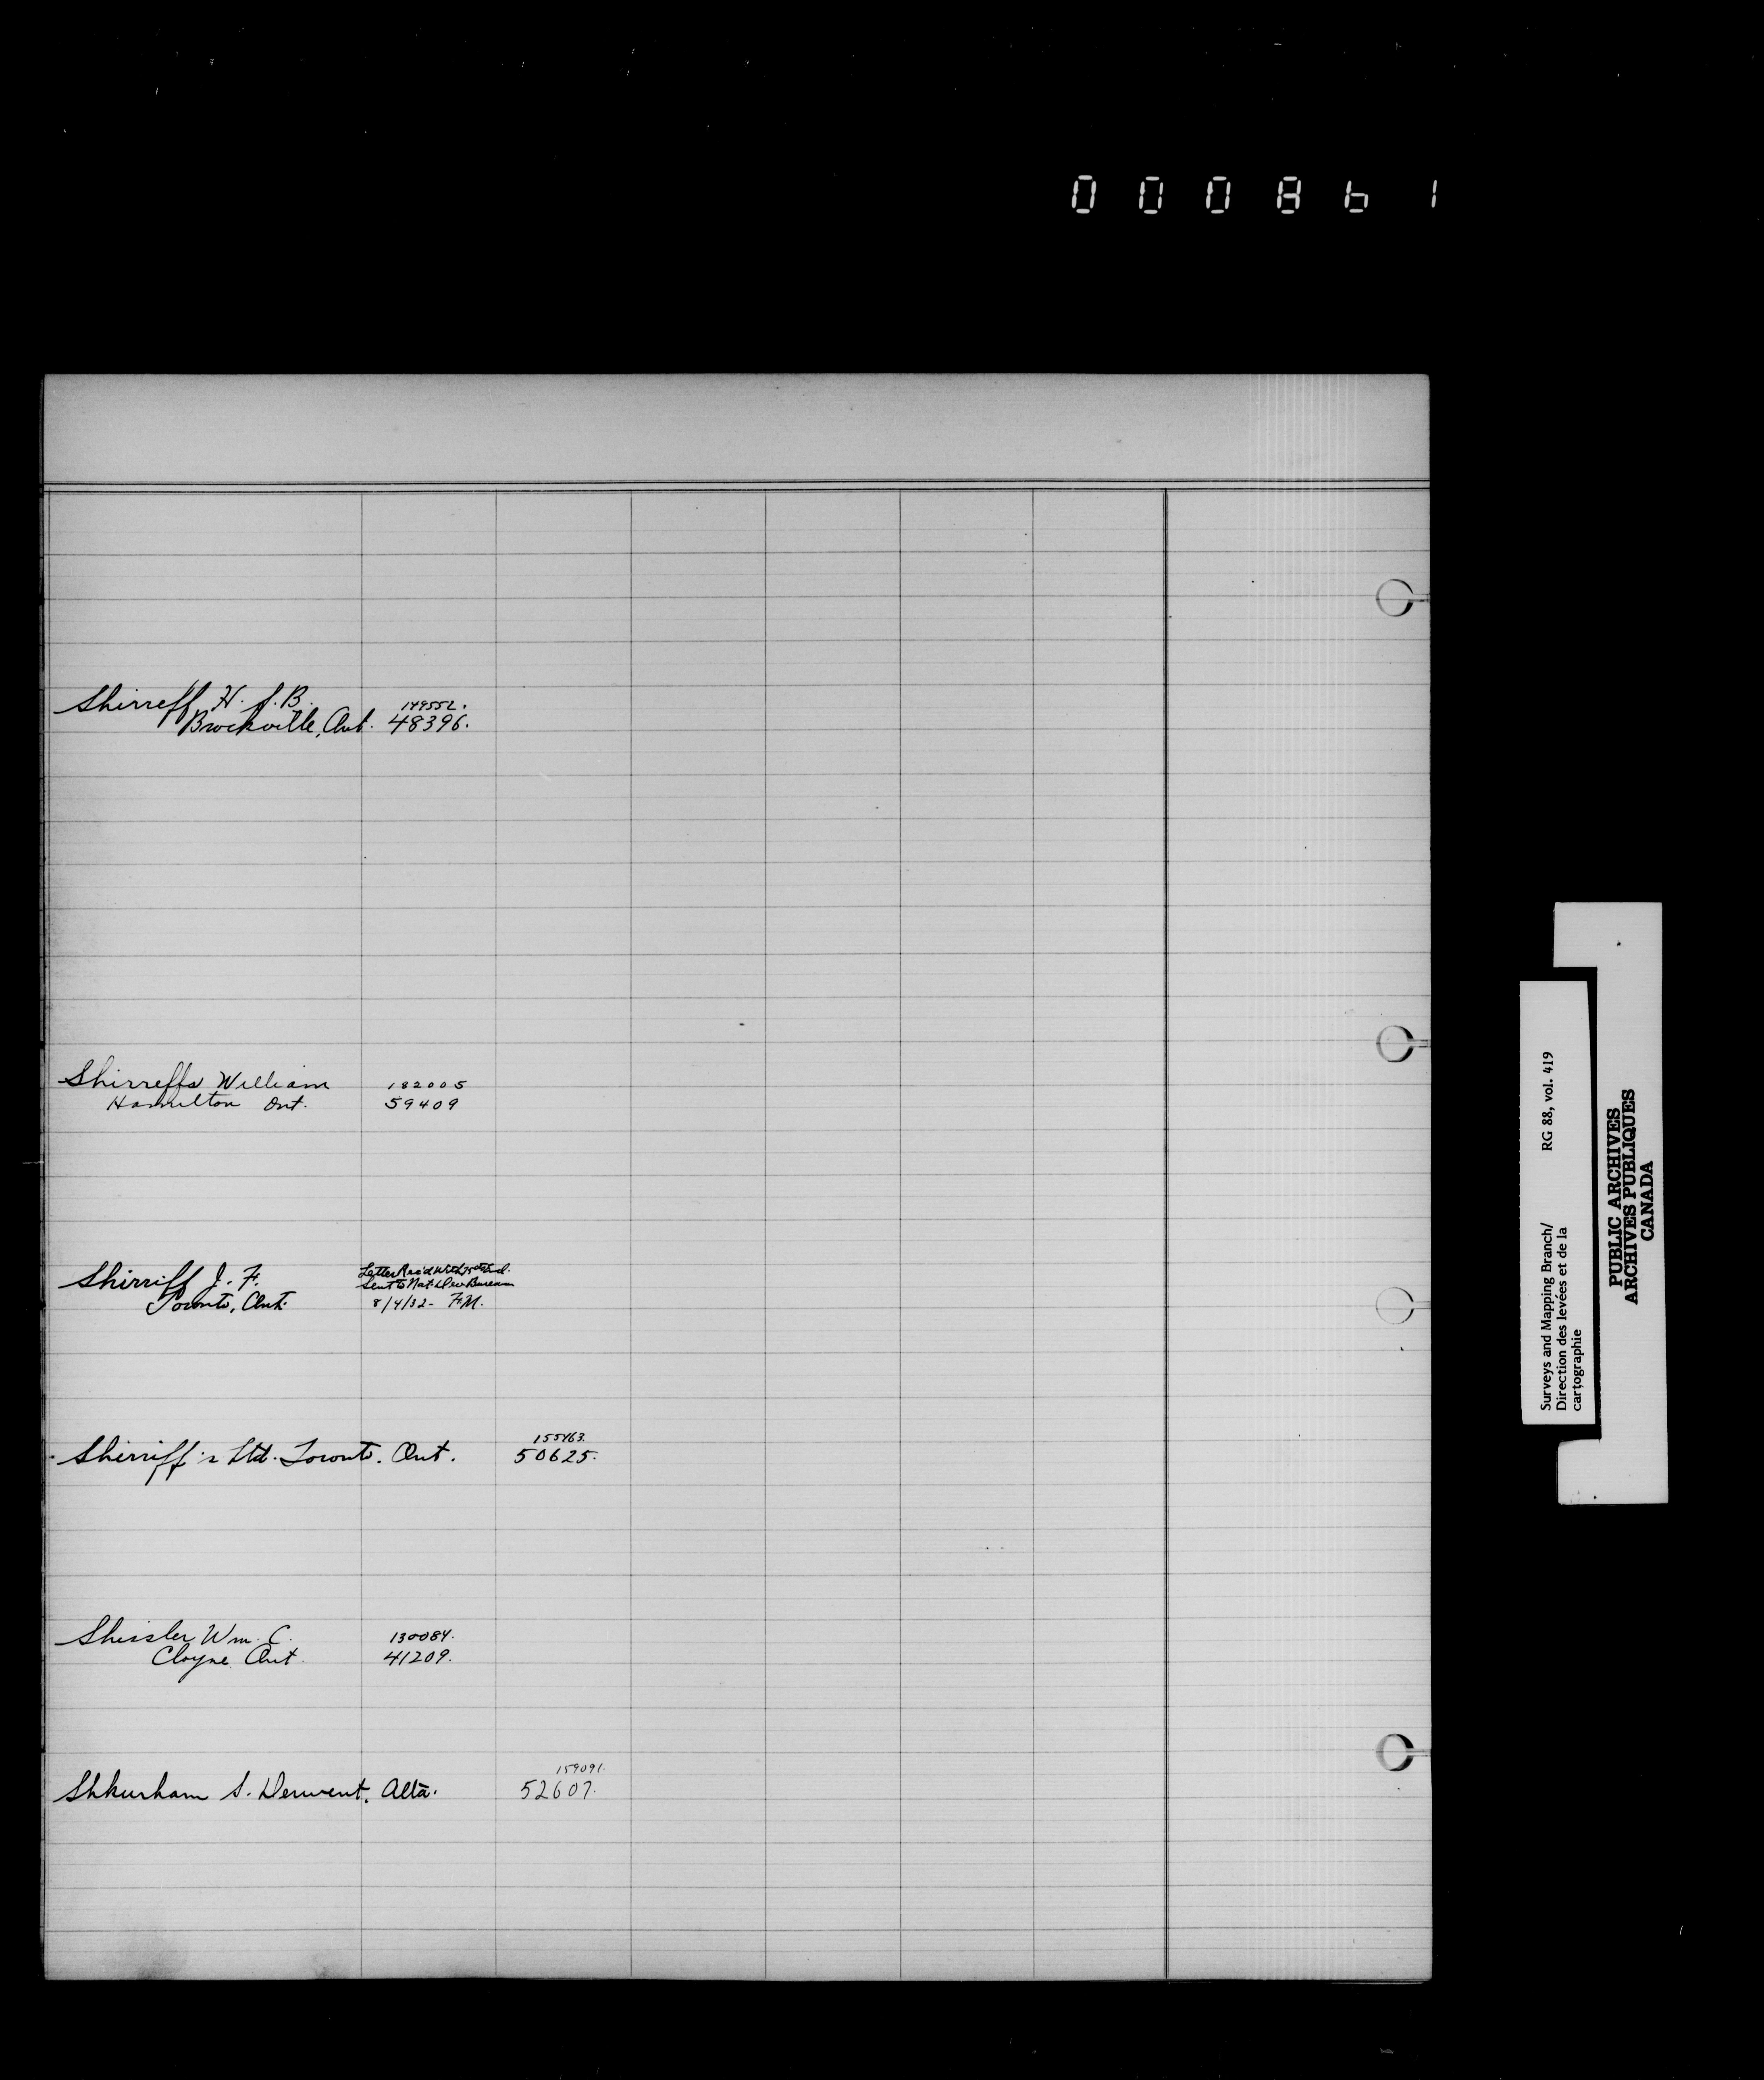 000861
Shirreff H. S. B. 149552.
Brockville, Ont. 48396.
Shirreffs William 182005
Hamilton Ont. 59409
Shirriff J. F. Letter Rec'd with
Toronto, Ont. Sent to Nat Dev Bureau
8/4/32 - F.M.
155463.
Shirriff's Ltd. Toronto. Ont. 50625.
Shissler Wm. C. 130084.
Cloyne Ont. 41209.
159091.
Shkurham S. Derwent, Alta. 52607.
Surveys and Mapping Branch/ RG 88, vol. 419
Direction des levées et de la
cartographie
PUBLIC ARCHIVES
ARCHIVES PUBLIQUES
CANADA